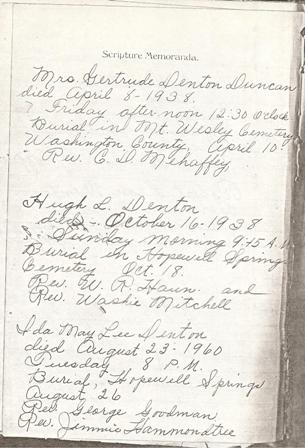 Scripture Memoranda.
Mrs. Gertrude Denton Duncan
died April 8-1938.
Friday afternoon 12:30 O'clock
Burial in Mt. Wesley Cemetery
Washington County, April 10-
Rev. E. D. Mehaffey
Hugh L. Denton
died - October 16-1938
Sunday morning 9:45 A.
Burial in Hopewell Springs
Cemetery Oct. 18.
Rev. W. R. Haun. and
Rev. Washie Mitchell
Ida May Lee Denton
died August 23: 1960
Tuesday 8 P.M.
Burial, Hopewell Springs
August 26
Rev George Goodman
Rev. Jimmie Hammondtree